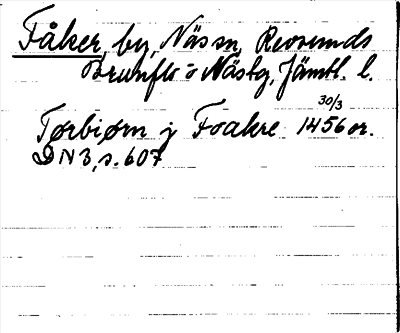 Fåker, by, Näs sn, Revsunds
Brunflo o Näs tg, Jämtl. l.
30/3
Tørbiørn j Foakre 1456 or.
DN 3, s. 607